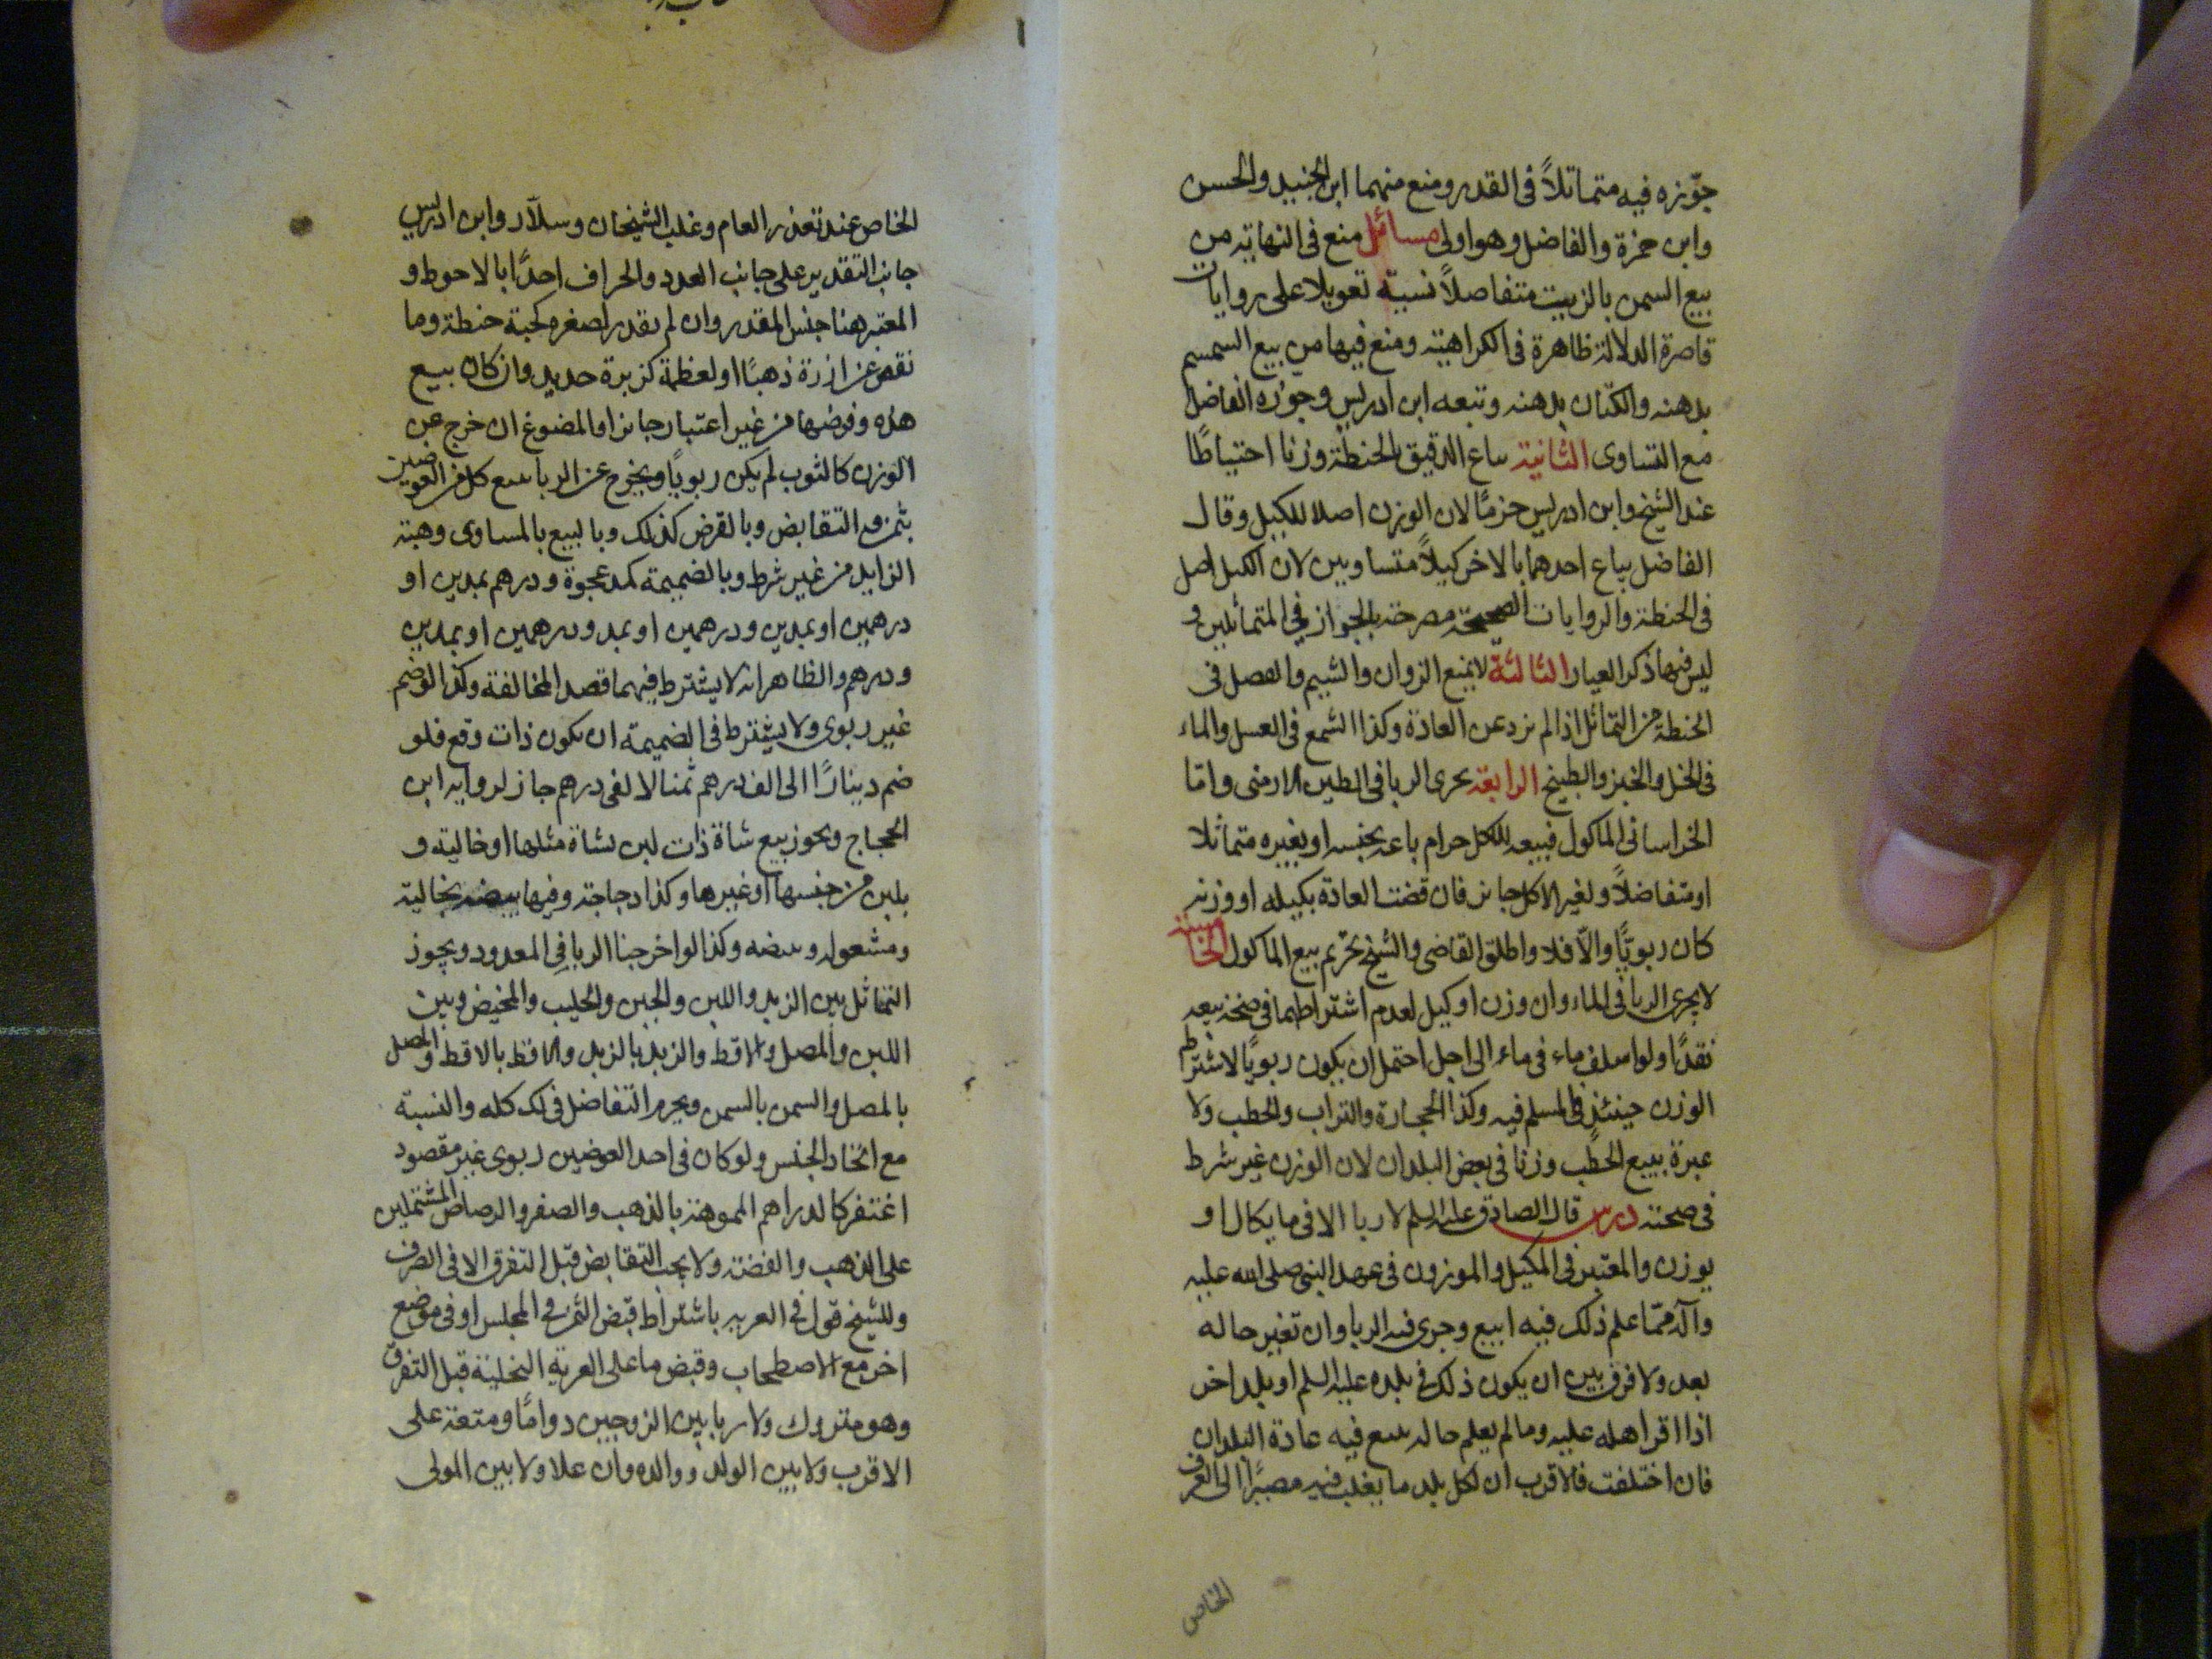 جوّزه فيه متماثلاً فى القدر ومنع منهما ابن الجنيد والحسن
وابن حمزة والفاضل وهو اولى مسائل منع فى النهاية من
بيع السمن بالزيت متفاضلاً نسية تعويلا على روايات
قاصرة الدلالة ظاهرة فى الكراهية ومنع فيها من بيع السمسم
بدهنه والكتان بدهنه وتبعه ابن ادريس وجوزه الفاضل
مع التساوى الثانية يباع الدقيق بالحنطة وزنا احتياطًا
عند الشيخ وابن ادريس جزمًا لان الوزن اصلا للكيل وقال
الفاضل يباع احدهما بالاخر كيلاً متساويين لان الكيل اصل
فى الحنطة والروايات الصحيحة مصرحة بالجواز فى المتماثلين و
ليس فيها ذكر العيار الثالثة لا يمنع الزوان والشيلم والفصل فى
الحنطة من التماثل اذا لم يزد عن العادة وكذا الشمع فى العسل والماء
فى الخل والخبز والطبيخ الرابعة يجرى الربا فى الطين الارمنى واما
الخراسانى الماكول فبيعه للاكل حرام باعه بجنسه او بغيره متماثلا
او متفاضلاً ولغير الاكل جايز فان قضت العادة بكيله او وزنه
كان ربويًا والّا فلا واطلق القاضى والشيخ تحريم بيع الماكول الخامسة
لا يجرى الربا فى الماء وان وزن او كيل لعدم اشتراطهما فى صحة بيعه
نقدًا ولو اسلف ماء فى ماء الى اجل احتمل ان يكون ربويًا لاشتراط
الوزن حينئذٍ فى المسلم فيه وكذا الحجارة والتراب والحطب ولا
عبرة ببيع الحطب وزنا فى بعض البلدان لان الوزن غير شرط
فى صحته درس قال الصادق عليه السلم لا ربا الا فى ما يكال او
يوزن والمعتبر فى المكيل والموزون فى عهد النبى صلى الله عليه
وآله فمّا علم ذلك فيه ابيع وجرى فيه الربا وان تغير حاله
بعد ولا فرق بين ان يكون ذلك فى بلده عليه السلم او بلد اخر
اذا اقر اهله عليه وما لم يعلم حاله يتبع فيه عادة البلدان
فان اختلفت فالاقرب ان لكل بلد ما يغلب فيه مصيرًا الى العرف
الخاص
الخاص عند تعذر العام وغلب الشيخان وسلّار وابن ادريس
جانب التقدير على جانب العدد والجراف اخذًا بالاحوط و
المعتبر هنا جنس المقدر وان لم يقدر لصغره كحبة حنطة وما
نقص عن ارزة ذهبًا او لعظمة كزبرة حديد وان كان بيع
هذه وقرضها من غير اعتبار جايزا والمصنوع ان خرج عن
الوزن كالثوب لم يكن ربويًا ويخرج عن الربا ببيع كل من العوضين
بثمن مع التقابض وبالقرض كذلك وبالبيع بالمساوى وهبة
الزايد من غير شرط وبالضميمة كمد عجوة ودرهم بمدين او
درهمين او بمدين ودرهمين او بمد ودرهمين او بمدين
ودرهم والظاهر انه لا يشترط فيهما قصد المخالفة وكذا لو ضم
غير ربوى ولا يشترط فى الضميمة ان يكون ذات وقع فلو
ضم دينارًا الى الف درهم ثمنا لالفى درهم جاز لرواية ابن
الحجاج ويجوز بيع شاة ذات لبن بشاة مثلها او خالية و
بلبن من جنسها او غيرها وكذا دجاجة وفيها بيضة بخالية
ومشغولة وبيضة وكذا لو اخرجنا الربا فى المعدود ويجوز
التماثل بين الزبد واللبن والجبن والحليب والمخيض وبين
اللبن والمصل والاقط والزبد بالزبد والاقط بالاقط والمصل
بالمصل والسمن بالسمن ويحرم التفاضل فى ذلك كله والنسية
مع اتحاد الجنس ولو كان فى احد العوضين ربوى غير مقصود
اغتفر كالدراهم المموهة بالذهب والصفر والرصاص المشتملين
على الذهب والفضة ولا يجب التقابض قبل التفرق الا فى الصرف
وللشيخ قول فى العرية باشتراط قبض الثمن فى المجلس او فى موضع
اخر مع الاصطحاب وقبض ما على العرية النخلية قبل التفرق
وهو متروك ولا ربا بين الزوجين دوامًا ومتعة على
الاقرب ولا بين الولد ووالده وان علا ولا بين المولى